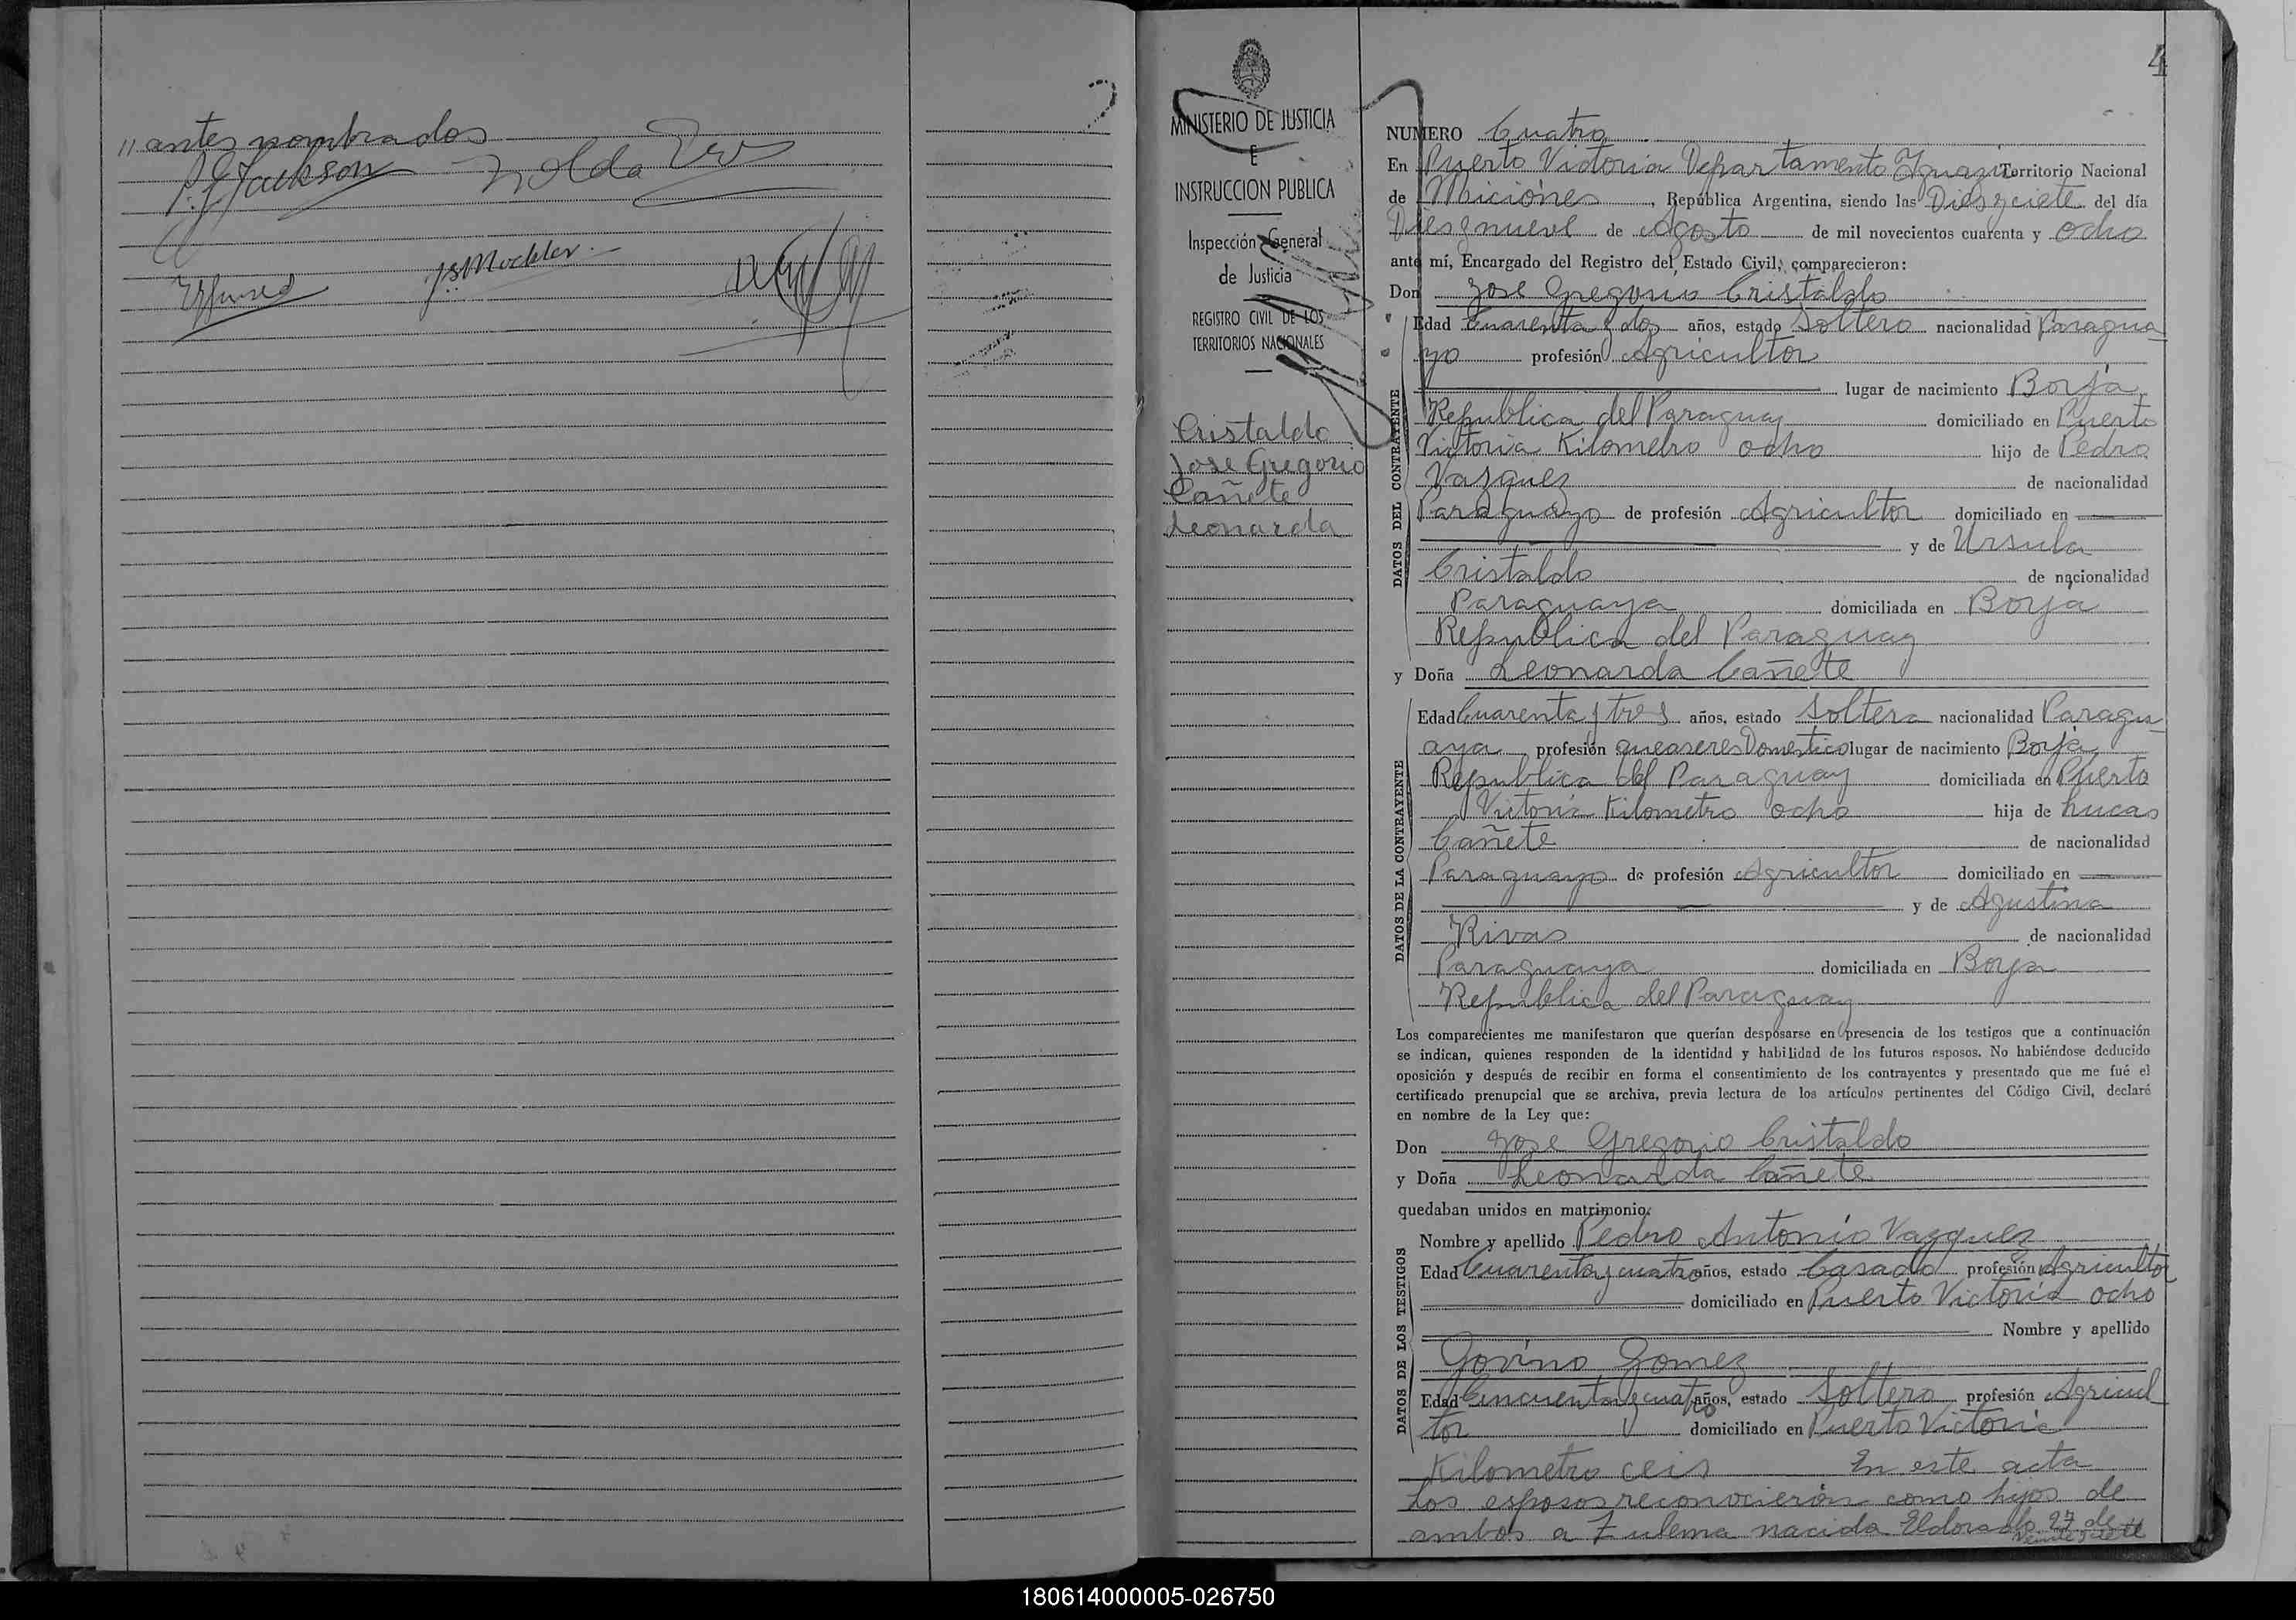 " antes nombrados
P. G. Jackson
4
MINISTERIO DE JUSTICIA
E
INSTRUCCION PUBLICA
Inspección General
de Justicia
REGISTRO CIVIL DE LOS
TERRITORIOS NACIONALES
Cristaldo
Jose Gregorio
Cañete
Leonarda
NUMERO Cuatro
En Puerto Victoria Departamento Yguazú Territorio Nacional
de Miciónes, República Argentina, siendo las Diesyciete del día
Diesynueve de Agosto de mil novecientos cuarenta y ocho
ante mí, Encargado del Registro del Estado Civil, comparecieron:
Don Jose Gregorio Cristaldo
DATOS DEL CONTRAYENTE
Edad Cuarenta y dos años, estado Soltero nacionalidad Paragua
yo profesión Agricultor
lugar de nacimiento Borja
Republica del Paraguay domiciliado en Puerto
Victoria Kilometro ocho hijo de Pedro
Vasques de nacionalidad
Paraguayo de profesión Agricultor domiciliado en
y de Ursula
Cristaldo de nacionalidad
Paraguaya domiciliada en Borja
Republica del Paraguay
y Doña Leonarda Cañete
DATOS DE LA CONTRAYENTE
Edad Cuarenta y tres años, estado Soltera nacionalidad Paragu
aya profesión queaseres Domestico lugar de nacimiento Borja
Republica del Paraguay domiciliada en Puerto
Victoria Kilometro ocho hija de Lucas
Cañete de nacionalidad
Paraguayo de profesión Agricultor domiciliado en
y de Agustina
Rivas de nacionalidad
Paraguaya domiciliada en Borja
Republica del Paraguay
Los comparecientes me manifestaron que querían desposarse en presencia de los testigos que a continuación
se indican, quienes responden de la identidad y habilidad de los futuros esposos. No habiéndose deducido
oposición y después de recibir en forma el consentimiento de los contrayentes y presentado que me fué el
certificado prenupcial que se archiva, previa lectura de los artículos pertinentes del Código Civil, declaré
en nombre de la Ley que:
Don Jose Gregorio Cristaldo
y Doña Leonarda Cañete
quedaban unidos en matrimonio.
DATOS DE LOS TESTIGOS
Nombre y apellido Pedro Antonio Vazques
Edad Cuarenta y cuatro años, estado Casado profesión Agricultor
domiciliado en Puerto Victoria ocho
Nombre y apellido
Govino Gomez
Edad Cincuenta y cuatro años, estado Soltero profesión Agricul
tor domiciliado en Puerto Victoria
Kilometro ceis En este acta
Los esposos reconocieron como hijos de
ambos a Zulema nacida Eldorado 27 de
180614000005-026750